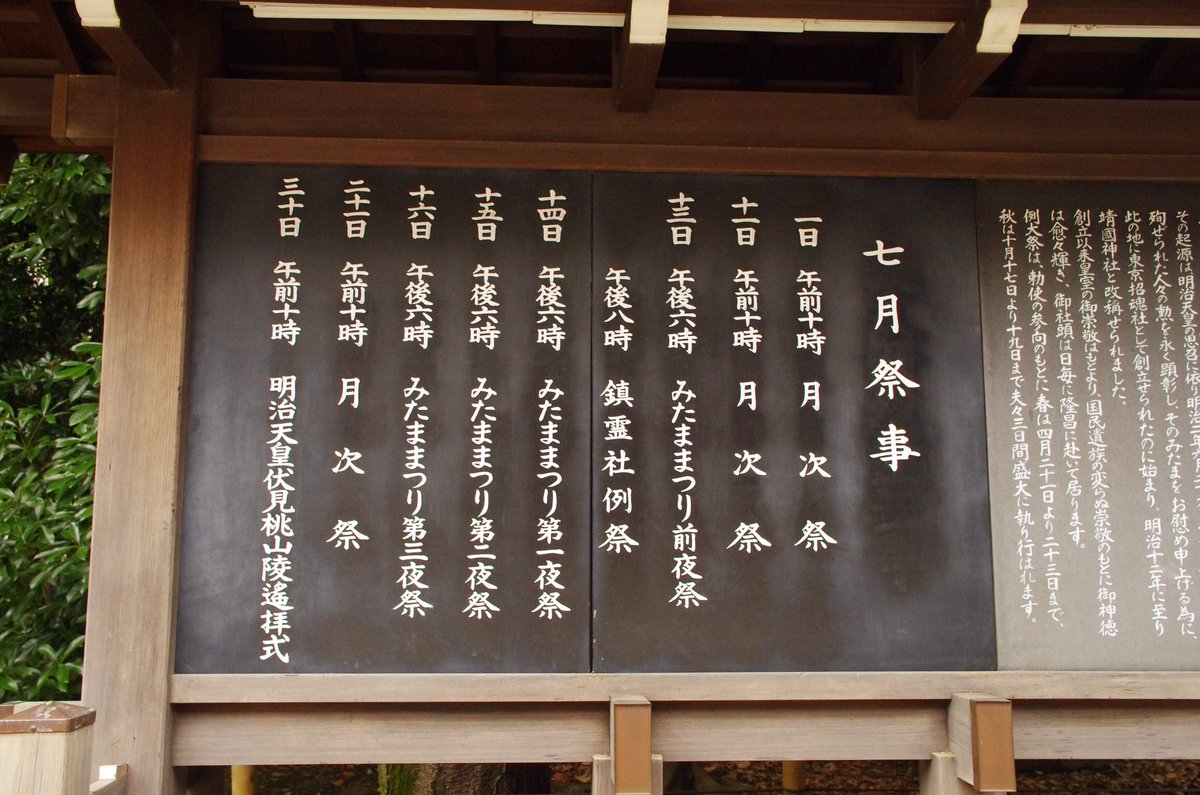 その起源は明治天皇の思召に依り明治二
殉せられた人々の勲を永く顕彰しそのみたまをお慰め申上げる為に、
此の地に東京招魂社として創立せられたのに始まり、明治十二年に至り
靖國神社と改稱せられました。
創立以来皇室の御崇敬はもとより、国民遺族の変らぬ崇敬のもとに御神徳
は愈々輝き、御社頭は日毎に隆昌に赴いて居ります。
例大祭は、勅使の参向のもとに、春は四月二十一日より二十三日まで、
秋は十月十七日より十九日まで夫々三日間盛大に執り行はれます。
七月祭事
一日 午前十時 月次祭
十一日 午前十時 月次祭
十三日 午後六時 みたままつり前夜祭
午後八時 鎮霊社例祭
十四日 午後六時 みたままつり第一夜祭
十五日 午後六時 みたままつり第二夜祭
十六日 午後六時 みたままつり第三夜祭
二十一日 午前十時 月次祭
三十日 午前十時 明治天皇伏見桃山陵遙拝式